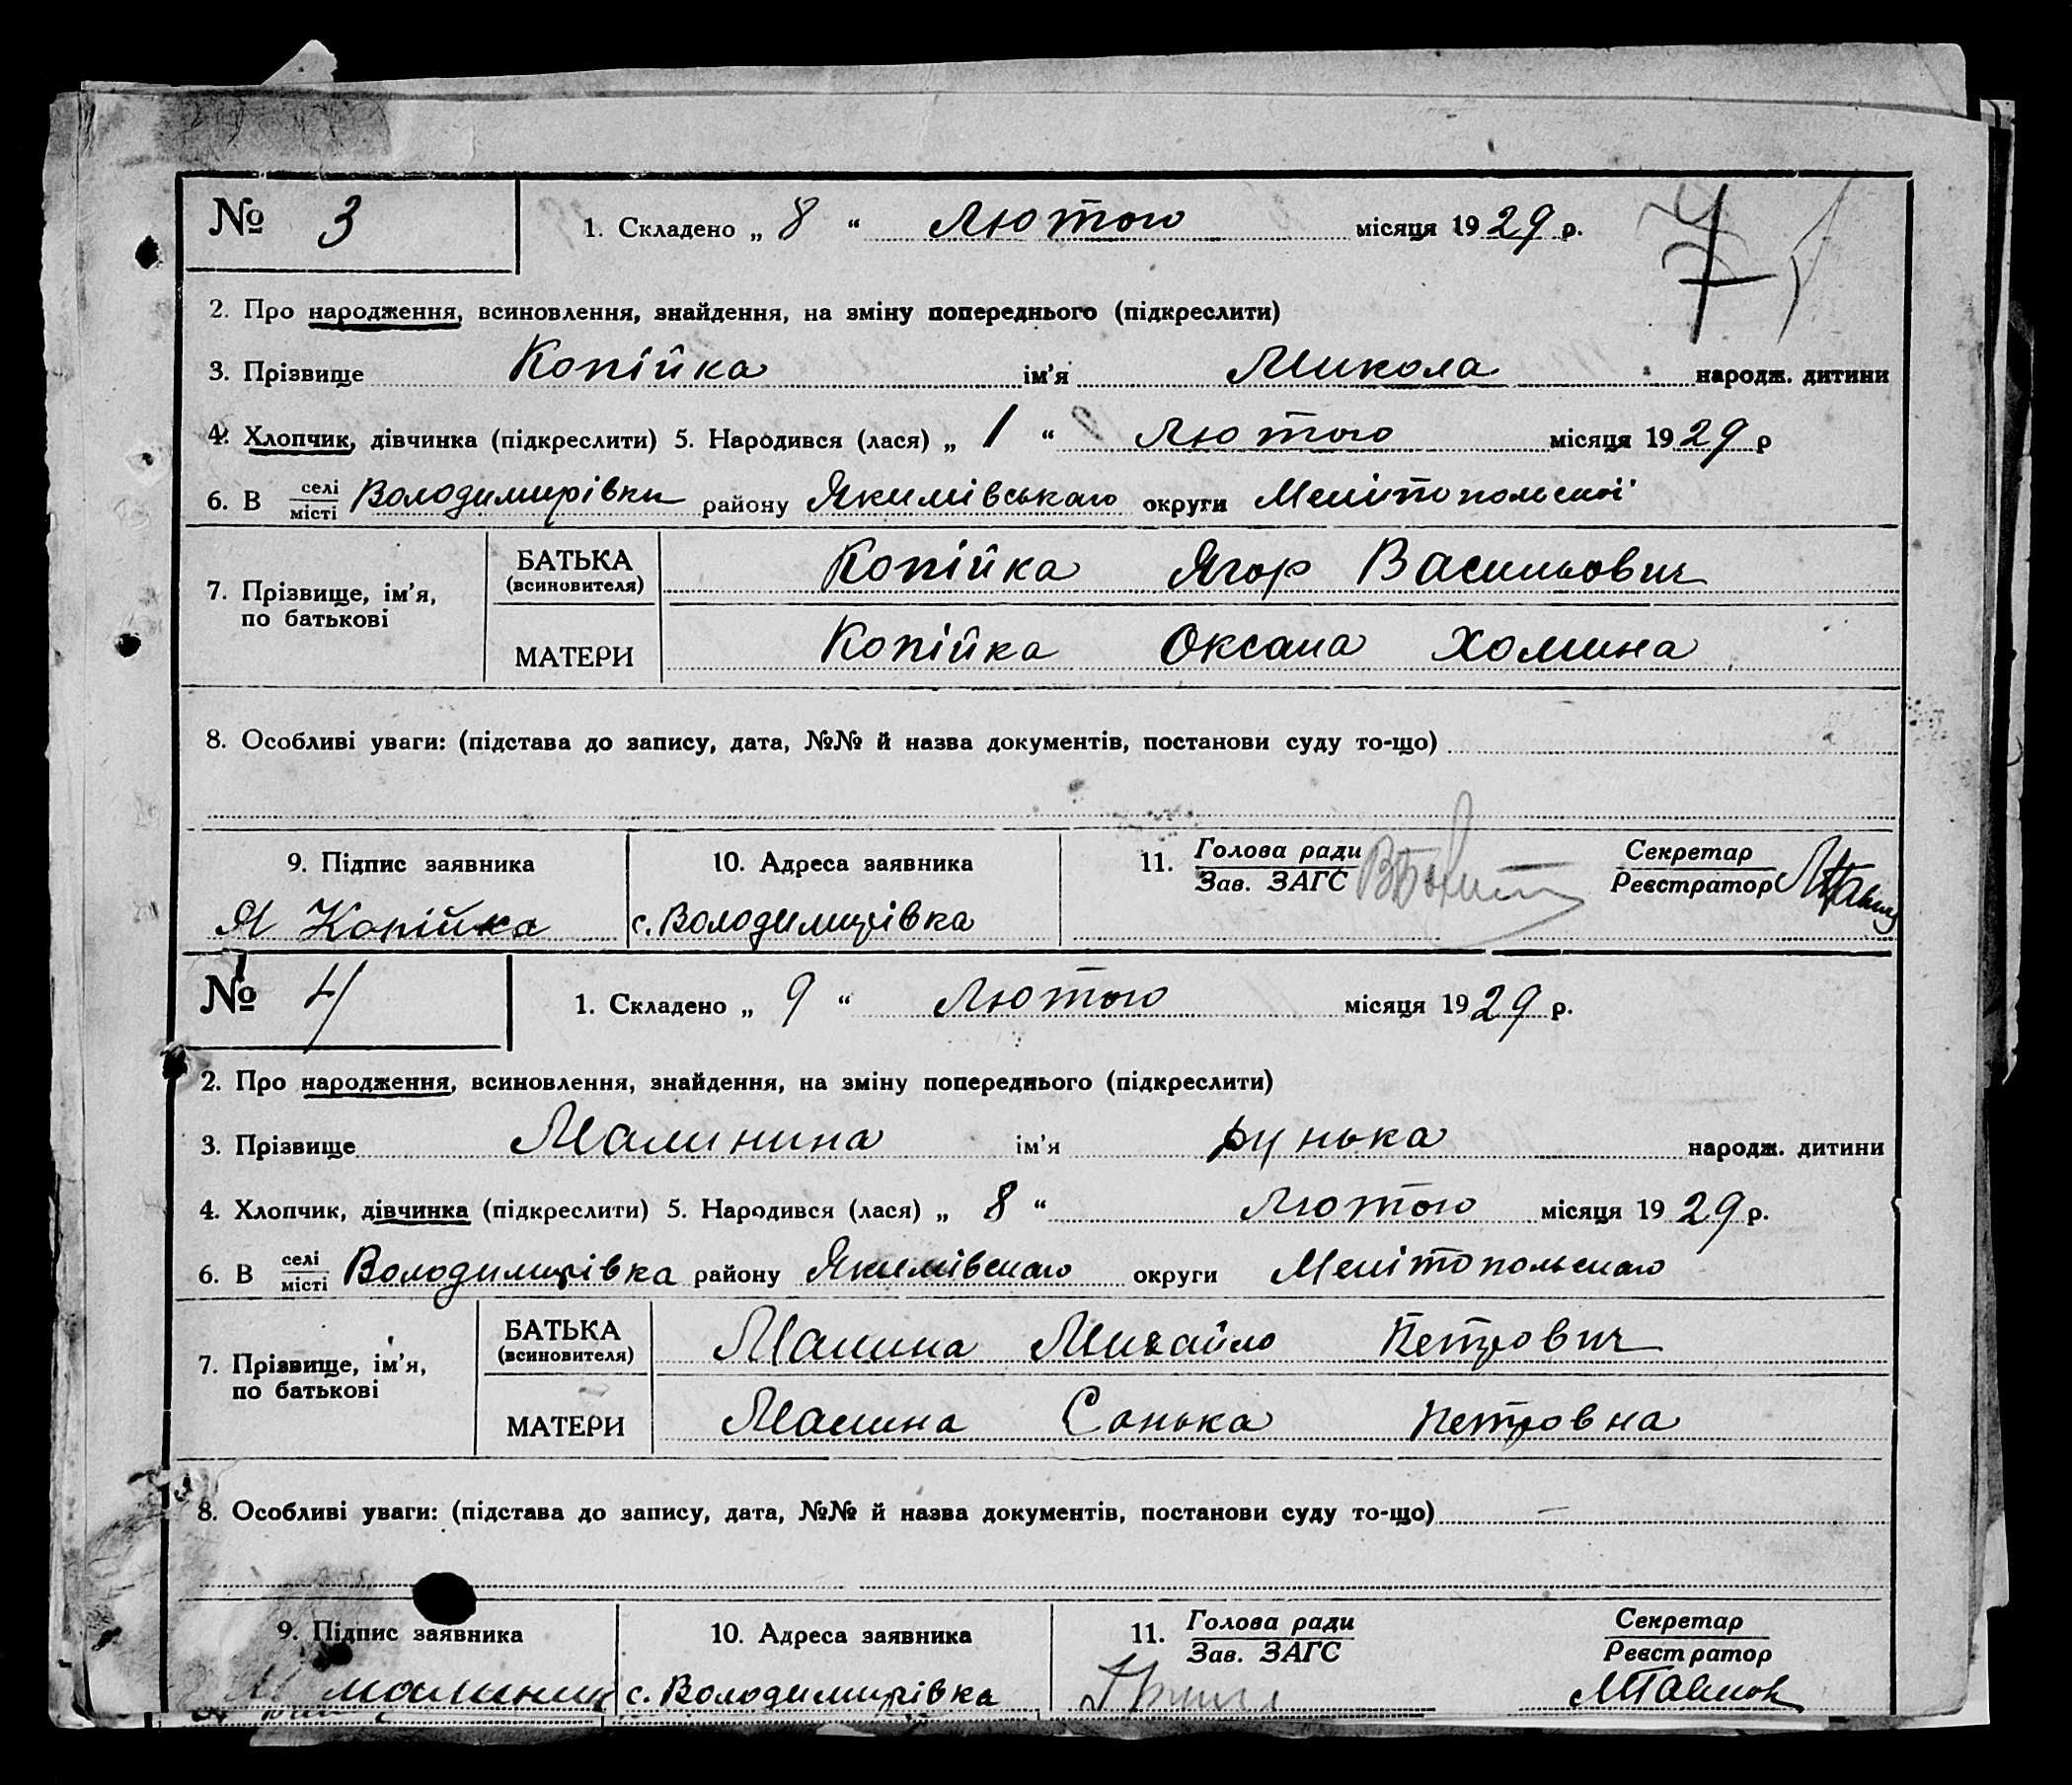 № 3 1. Складено „ 8 “ Лютого місяця 1929 р.
2. Про народження, всиновлення, знайдення, на зміну попереднього (підкреслити)
3. Прізвище Копійка ім'я Микола народж. дитини
4. Хлопчик, дівчинка (підкреслити) 5. Народився (лася) „ 1 “ Лютого місяця 1929 р
6. В селі місті Володимирівки району Якимівського округи Мелітопольської
7. Прізвище, ім'я, по батькові БАТЬКА (всиновителя) Копійка Ягор Васильович
МАТЕРИ Копійка Оксана Хомина
8. Особливі уваги: (підстава до запису, дата, №№ й назва документів, постанови суду то-що)
9. Підпис заявника 10. Адреса заявника 11. Голова ради Зав. ЗАГС Секретар Реєстратор
Я Копійка с. Володимирівка
№ 4 1. Складено „ 9 “ Лютого місяця 1929 р.
2. Про народження, всиновлення, знайдення, на зміну попереднього (підкреслити)
3. Прізвище Малинина ім'я народж. дитини
4. Хлопчик, дівчинка (підкреслити) 5. Народився (лася) „ 8 “ Лютого місяця 1929 р.
6. В селі місті Володимирівка району Якимівского округи Мелітопольского
7. Прізвище, ім'я, по батькові БАТЬКА (всиновителя) Малина Михайло Петрович
МАТЕРИ Малина Санька Петровна
8. Особливі уваги: (підстава до запису, дата, №№ й назва документів, постанови суду то-що)
9. Підпис заявника 10. Адреса заявника 11. Голова ради Зав. ЗАГС Секретар Реєстратор
с. Володимирівка